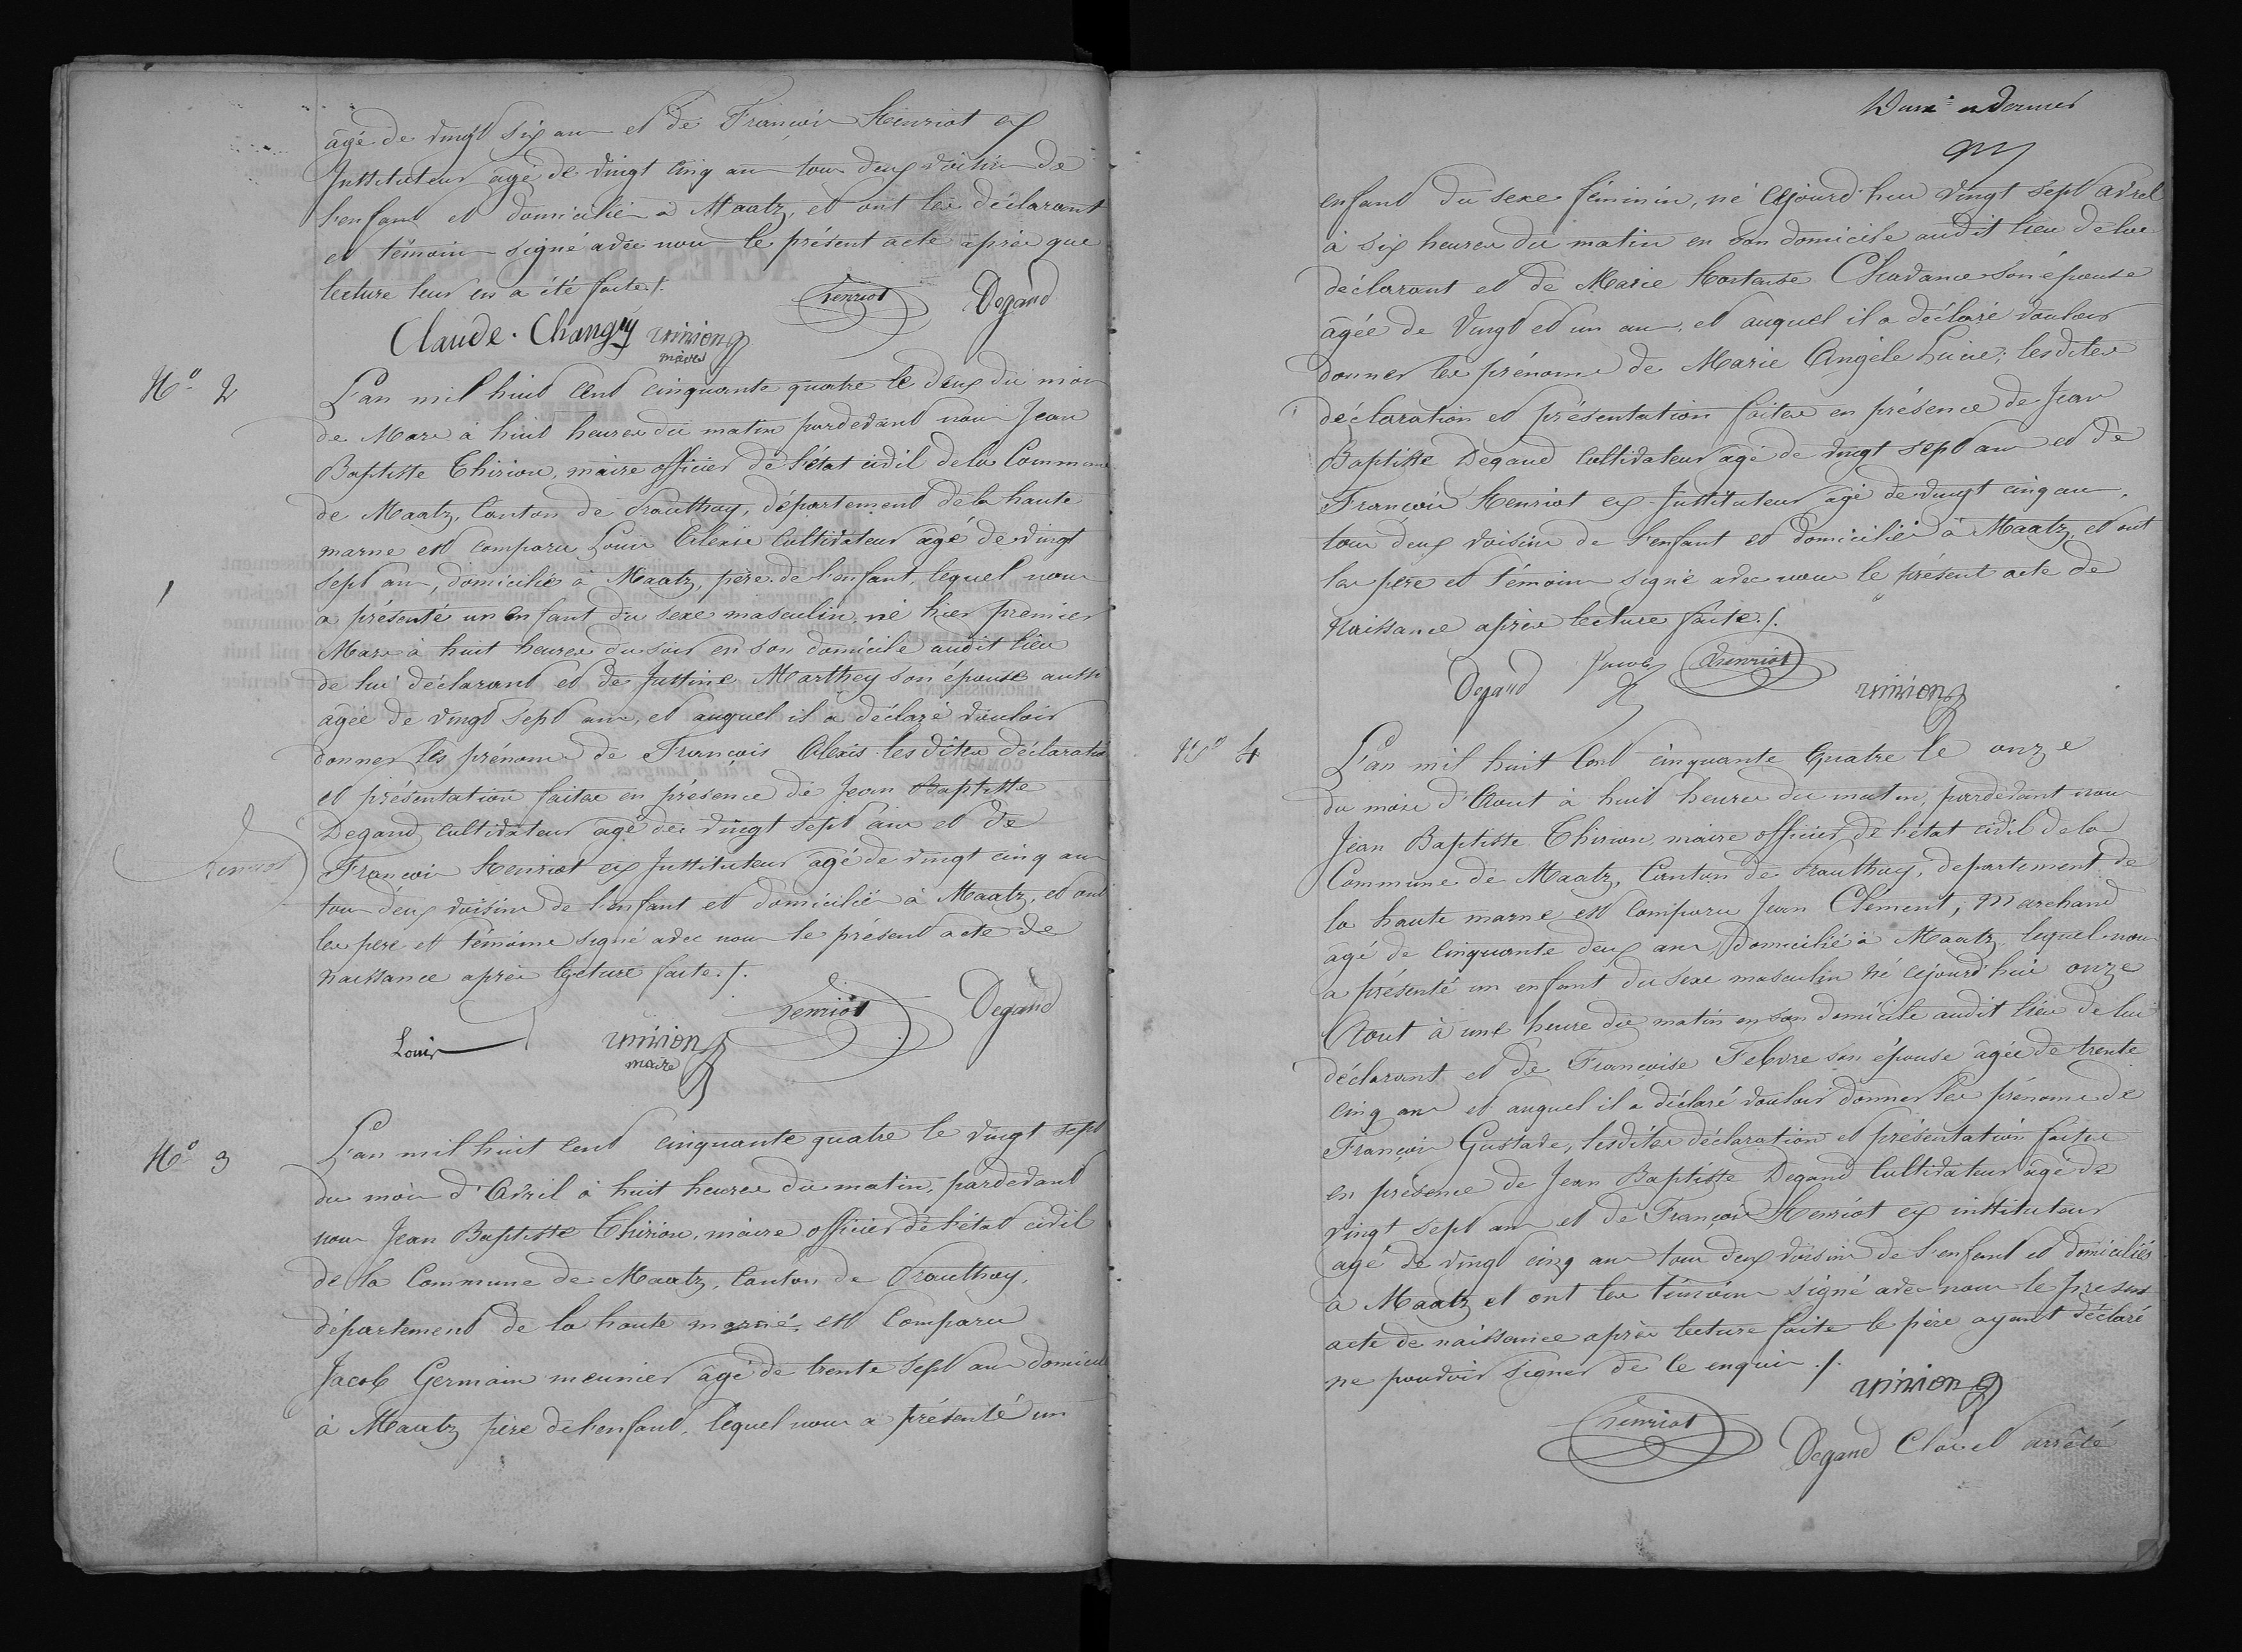 âgé de vingt six ans et de François Henriot ex
Instituteur âgé de vingt cinq ans tous deux voisins de
l'enfant et domiciliés à Maatz, et ont les déclarant
et témoins signé avec nous le présent acte après que
lecture leur en a été faite ./.
Henriot Degand
Claude Changey Thirion
maire
N.° 2
L'an mil huit cent cinquante quatre le deux du mois
de Mars à huit heures du matin pardevant nous Jean
Baptiste Thirion, maire officier de l'état civil de la Commune
de Maatz, Canton de Prauthoy, département de la haute
marne est comparu Louis Alexis Cultivateur âgé de vingt
sept ans, domicilié à Maatz, père de l'enfant, lequel nous
a présenté un enfant du sexe masculin né hier premier
Mars à huit heures du soir en son domicile audit lieu
de lui déclarant et de Justine Marthey son épouse aussi
âgée de vingt sept ans, et auquel il a déclaré vouloir
donner les prénoms de François Alexis lesdites déclaration
et présentation faites en présence de Jean Baptiste
Degand cultivateur âgé de vingt sept ans et de
François Henriot ex Instituteur âgé de vingt cinq ans
tous deux voisins de l'enfant et domiciliés à Maatz, et ont
les père et témoins signé avec nous le présent acte de
naissance après lecture faite ./.
Henriot
Louis Thirion Henriot Degand
maire
N.° 3
L'an mil huit cent cinquante quatre le vingt sept
du mois d'Avril à huit heures du matin, pardevant
nous Jean Baptiste Thirion, maire officier de l'état civil
de la Commune de Maatz, Canton de Prauthoy,
département de la haute marne, est comparu
Jacob Germain meunier âgé de trente sept ans domicilié
à Maatz père de l'enfant, lequel nous a présenté un
et dernier
enfant du sexe féminin, né cejourd'hui vingt sept avril
à six heures du matin en son domicile audit lieu de lui
déclarant et de Marie Hortense Chavance son épouse
âgée de vingt et un ans, et auquel il a déclaré vouloir
donner les prénoms de Marie Angèle Lucie; lesdites
déclaration et présentation faites en présence de Jean
Baptiste Degand Cultivateur âgé de vingt sept ans et de
François Henriot ex Instituteur âgé de vingt cinq ans,
tous deux voisins de l'enfant et domiciliés à Maatz, et ont
les père et témoins signé avec nous le présent acte de
Naissance après lecture faite ./.
Degand Jacob Henriot Thirion
N° 4
L'an mil huit Cent cinquante Quatre le onze
du mois d'Aout à huit heures du matin, pardevant nous
Jean Baptiste Thirion maire officier de l'état civil de la
Commune de Maatz, Canton de Prauthoy, departement de
la haute marne est comparu Jean Clément, Marchand
âgé de cinquante deux ans domicilié à Maatz lequel nous
a présenté un enfant du sexe masculin né cejourd'hui onze
Aout à une heure du matin en son domicile audit lieu de lui
déclarant et de Françoise Febvre son épouse âgée de trente
cinq ans et auquel il a déclaré vouloir donner les prénoms de
François Gustave, lesdites déclaration et présentation faites
en présence de Jean Baptiste Degand Cultivateur âgé de
vingt sept ans et de François Henriot ex instituteur
âgé de vingt cinq ans tous deux voisins de l'enfant et domiciliés
à Maatz et ont les témoins signé avec nous le présent
acte de naissance après lecture faite le père ayant déclaré
ne pouvoir signer de ce enquis ./.
Thirion
Henriot Degand Clos et arrêté